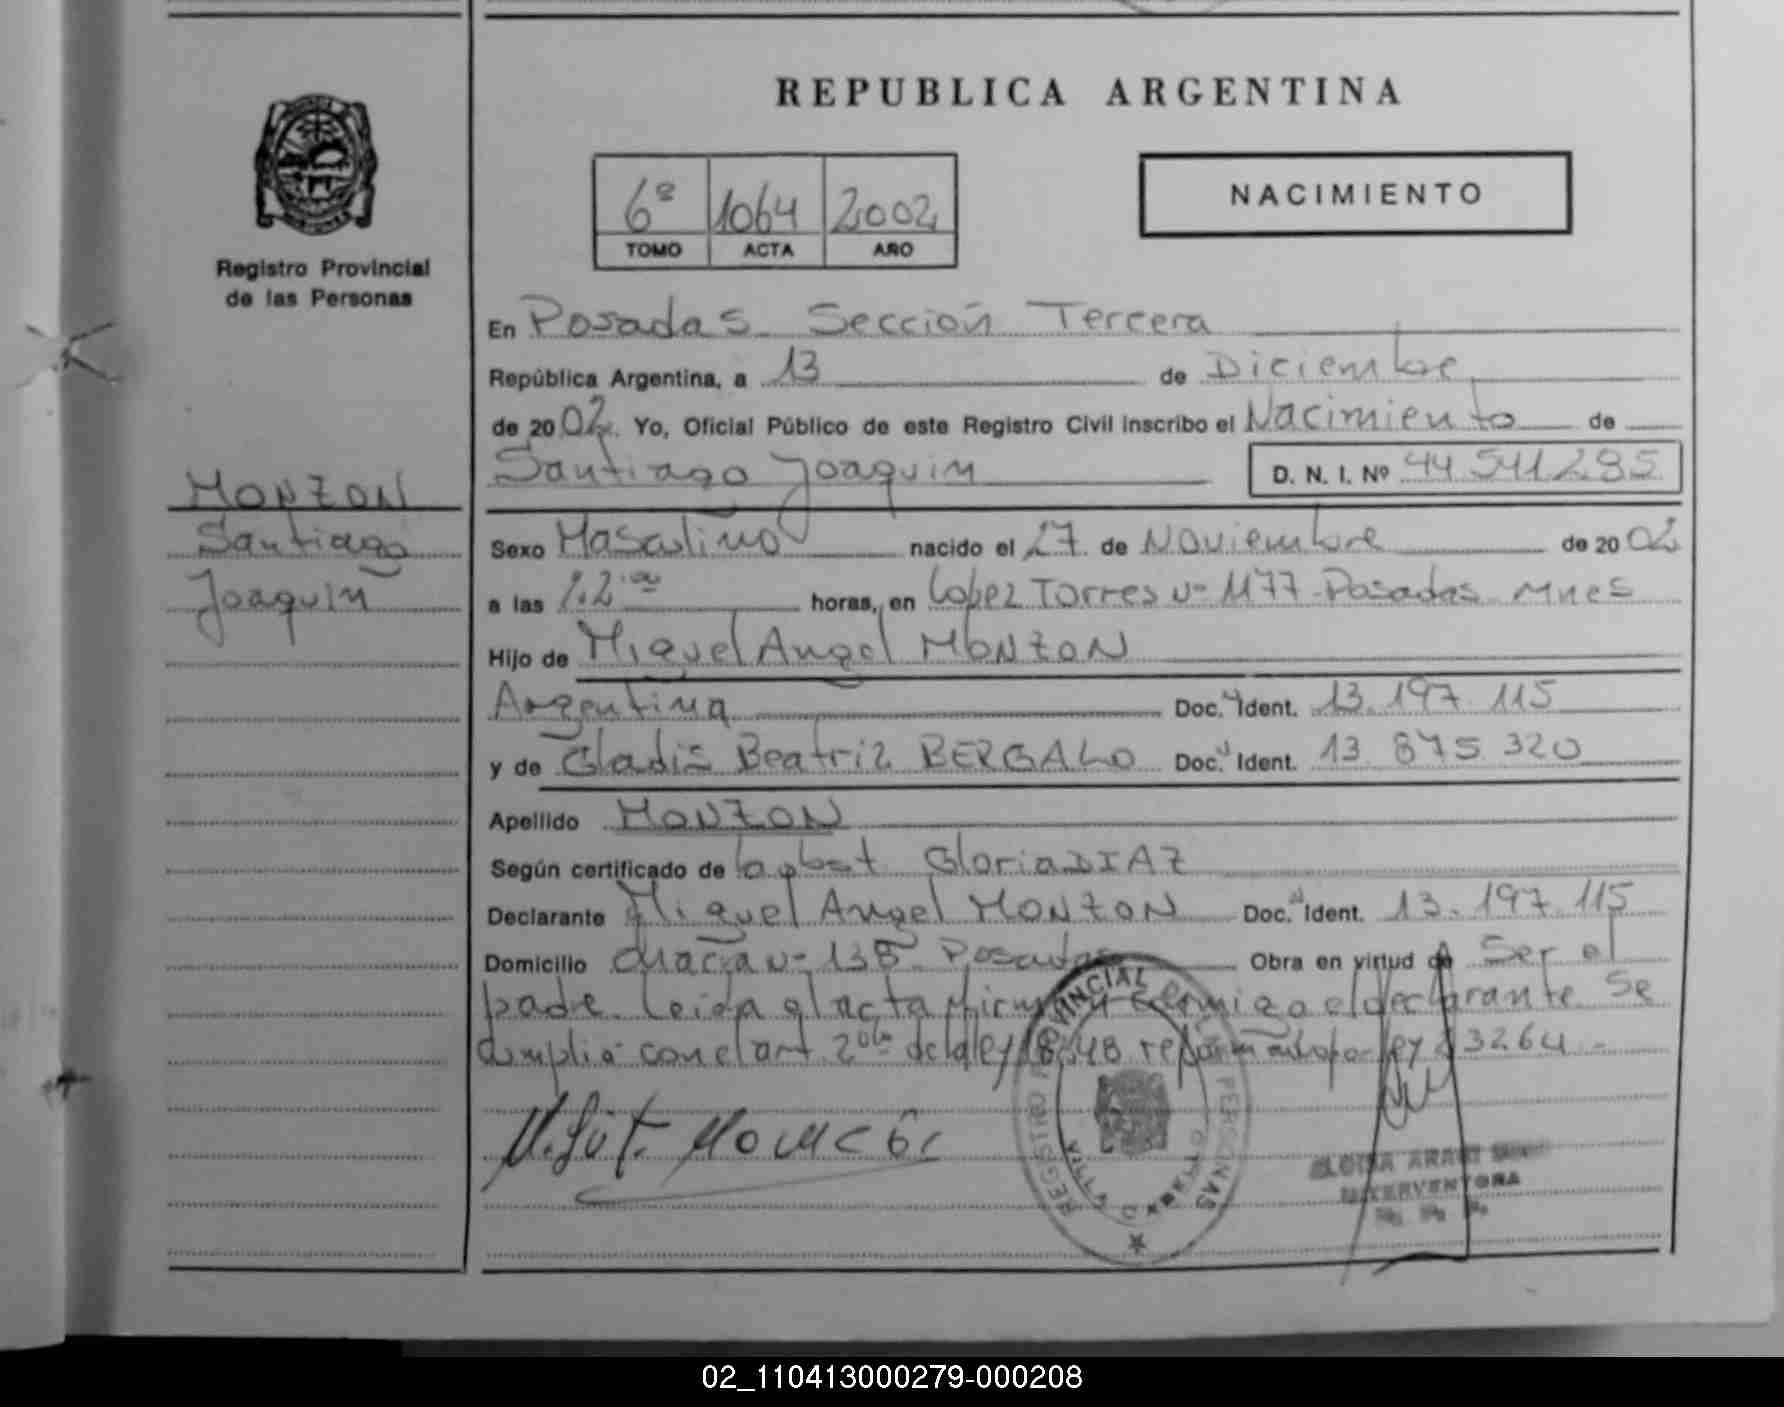 REPUBLICA ARGENTINA
6º 1064 2002
TOMO ACTA AÑO
NACIMIENTO
Registro Provincial
de las Personas
En Posadas Sección Tercera
República Argentina, a 13 de Diciembre
de 2002. Yo, Oficial Público de este Registro Civil inscribo el Nacimiento de
Santiago Joaquin D. N. I. Nº 44.541.285
MONZON
Santiago
Joaquin
Sexo Masculino nacido el 27 de Noviembre de 2002
a las horas, en Lopez Torres Nº 1177 Posadas Mnes
Hijo de Miguel Angel MONZON
Argentina Doc. Ident. 13.197.115
y de Gladis Beatriz BERGALO Doc. Ident. 13.875.320
Apellido MONZON
Según certificado de la obst Gloria DIAZ
Declarante Miguel Angel MONZON Doc. Ident. 13.197.115
Domicilio Nº 138 Posadas Obra en virtud de Ser el
padre. Leida el acta firma conmigo el declarante Se
cumplió con el art 2do de la ley reformado por ley 23264.-
REGISTRO PROVINCIAL DE LAS PERSONAS
VILLA URKELLO
INTERVENTORA
02_110413000279-000208